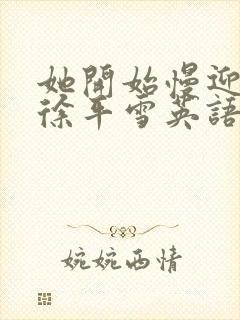 她開始慢迎
徐平雪英語
婉婉西情